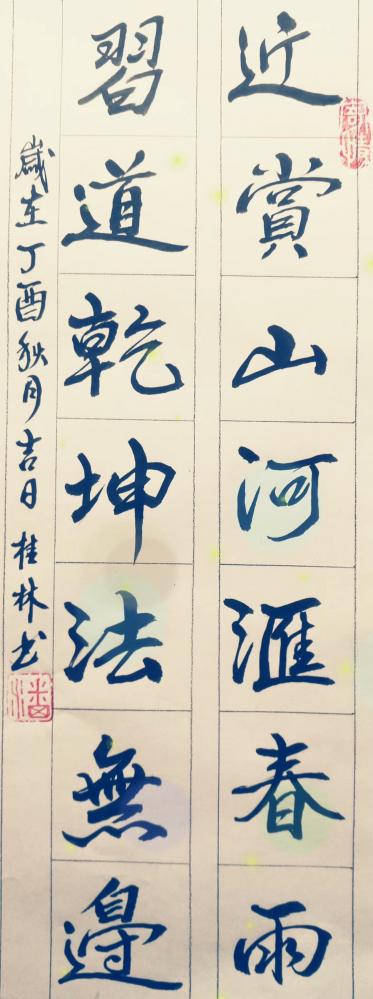 近賞山河滙春雨
習道乾坤法無邊
歲在丁酉秋月吉日桂林书
潘